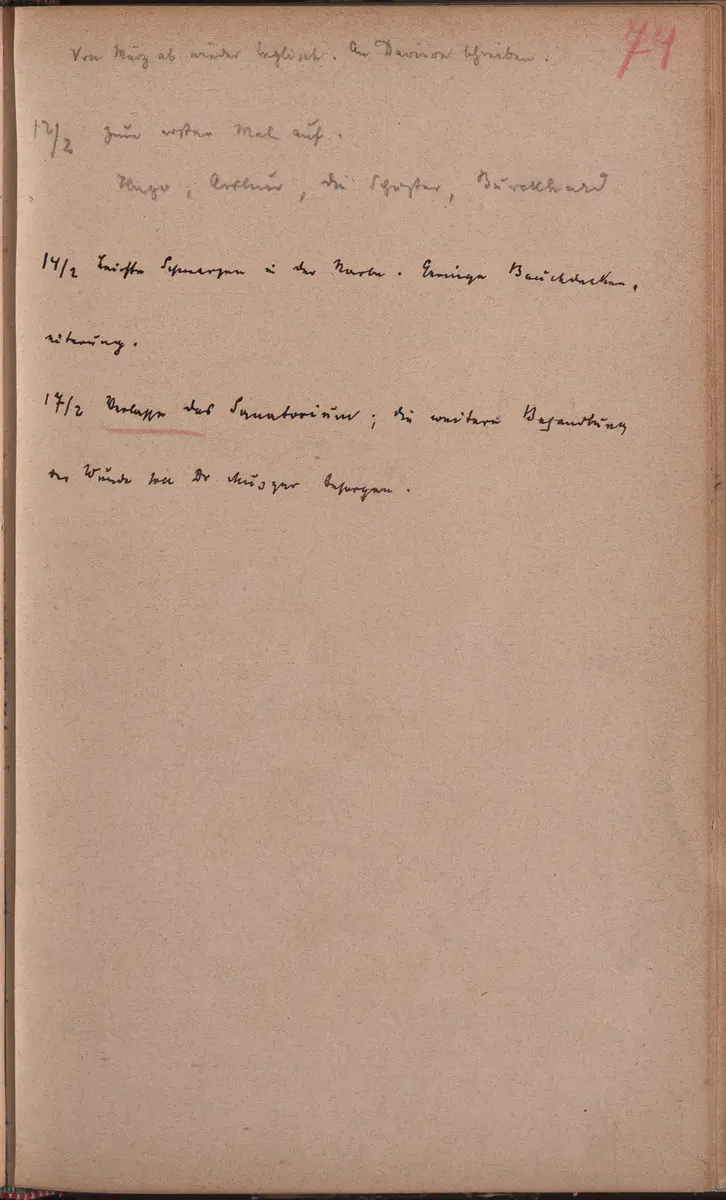 74
Von März ab wieder Englisch. An Davison schreiben.
12/2 zum ersten Mal auf.
Hugo, Arthur, die Schuster, Burckhard
14/2 Leichte Schmerzen in der Narbe. Geringe Bauchdecken-
eiterung.
17/2 Verlasse das Sanatorium; die weitere Behandlung
der Wunde soll Dr besorgen.